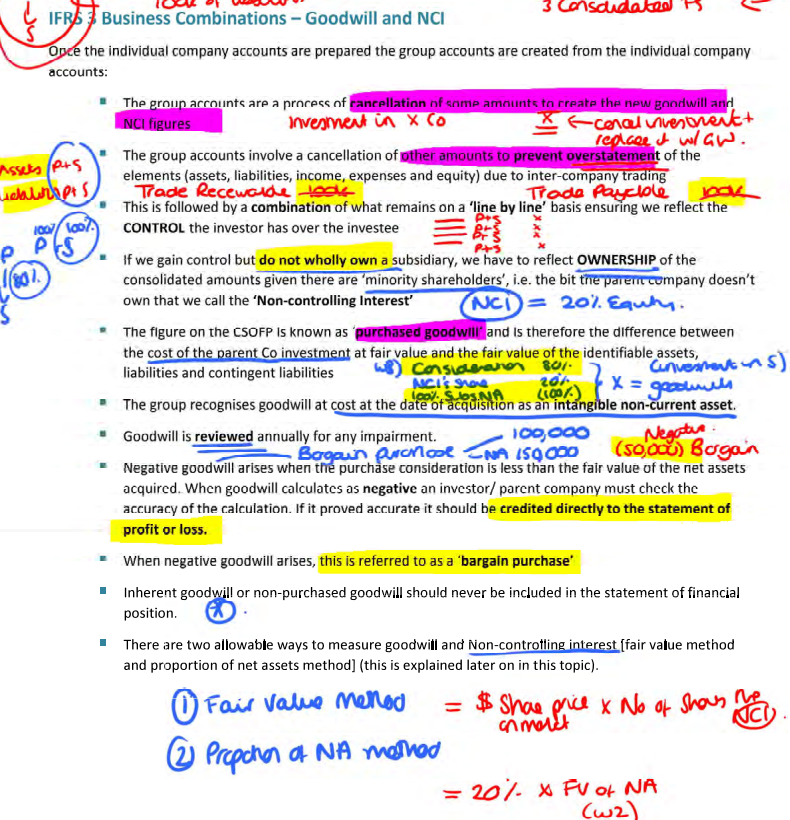 3 Consolidated FS
IFRS 3 Business Combinations – Goodwill and NCI
Once the individual company accounts are prepared the group accounts are created from the individual company
accounts:
The group accounts are a process of cancellation of some amounts to create the new goodwill and
NCI figures
Investment in X Co X ← cancel investment +
replace it w/ GW.
The group accounts involve a cancellation of other amounts to prevent overstatement of the
Assets P+S
elements (assets, liabilities, income, expenses and equity) due to inter-company trading
P+S
Trade Receivable 100k Trade Payable 100k
This is followed by a combination of what remains on a 'line by line' basis ensuring we reflect the
CONTROL the investor has over the investee
P+S x
P+S x
P+S x
P+S x
100% 100%
P + S
If we gain control but do not wholly own a subsidiary, we have to reflect OWNERSHIP of the
P
80%
S
consolidated amounts given there are 'minority shareholders', i.e. the bit the parent company doesn't
own that we call the 'Non-controlling Interest'
NCI = 20% Equity.
The figure on the CSOFP is known as 'purchased goodwill' and is therefore the difference between
the cost of the parent Co investment at fair value and the fair value of the identifiable assets,
liabilities and contingent liabilities
w3) Consideration 80% (investment in S)
NCI's share 20%
100% Subs NA (100%)
X = goodwill
The group recognises goodwill at cost at the date of acquisition as an intangible non-current asset.
Goodwill is reviewed annually for any impairment.
Bargain purchase 100,000
NA 150,000
Negative
(50,000) Bargain
Negative goodwill arises when the purchase consideration is less than the fair value of the net assets
acquired. When goodwill calculates as negative an investor/ parent company must check the
accuracy of the calculation. If it proved accurate it should be credited directly to the statement of
profit or loss.
When negative goodwill arises, this is referred to as a 'bargain purchase'
Inherent goodwill or non-purchased goodwill should never be included in the statement of financial
position.
There are two allowable ways to measure goodwill and Non-controlling interest [fair value method
and proportion of net assets method] (this is explained later on in this topic).
1 Fair Value Method = $ Share price x No of Shares
NCI
2 Proportion of NA method
= 20% x FV of NA
(w2)